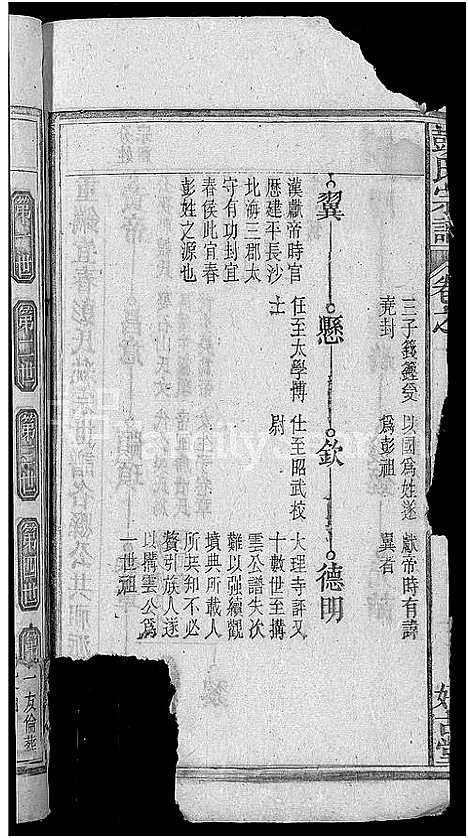 彭氏宗譜
卷之
三子籛鏗受
堯封
以國爲姓遂
爲彭祖
獻帝時有諱
翼者
翼
漢獻帝時官
歴建平長沙
北海三郡太
守有功封宜
春侯此宜春
彭姓之源也
懸
任至太學博
士
欽
仕至昭武校
尉
德明
大理寺評又
十數世至搆
雲公譜失次
難以强續觀
墳典所載人
所共知不必
贅引族人遂
以搆雲公爲
一世祖
第一世
第二世
第三世
第四世
第
一友倫葬